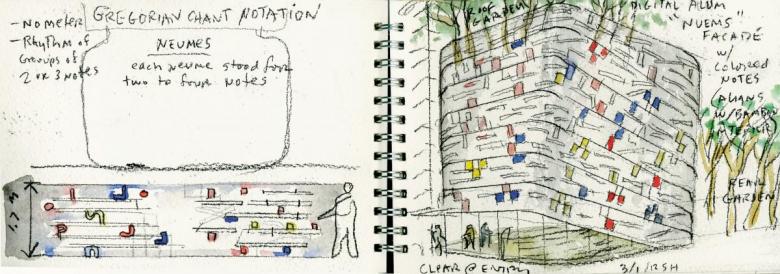 GREGORIAN CHANT NOTATION
- NO METER
- Rhythm of
Groups of
2 or 3 notes
NEUMES
each neume stood for
two to four notes
1.7 M
ROOF
GARDEN
DIGITAL ALUM
"NUEMS"
FACADE
w/
COLORED
NOTES
ALIGNS
W/BAMBOO
INTERIOR
REAR
GARDEN
CLEAR @ ENTRY
3/1/RSH